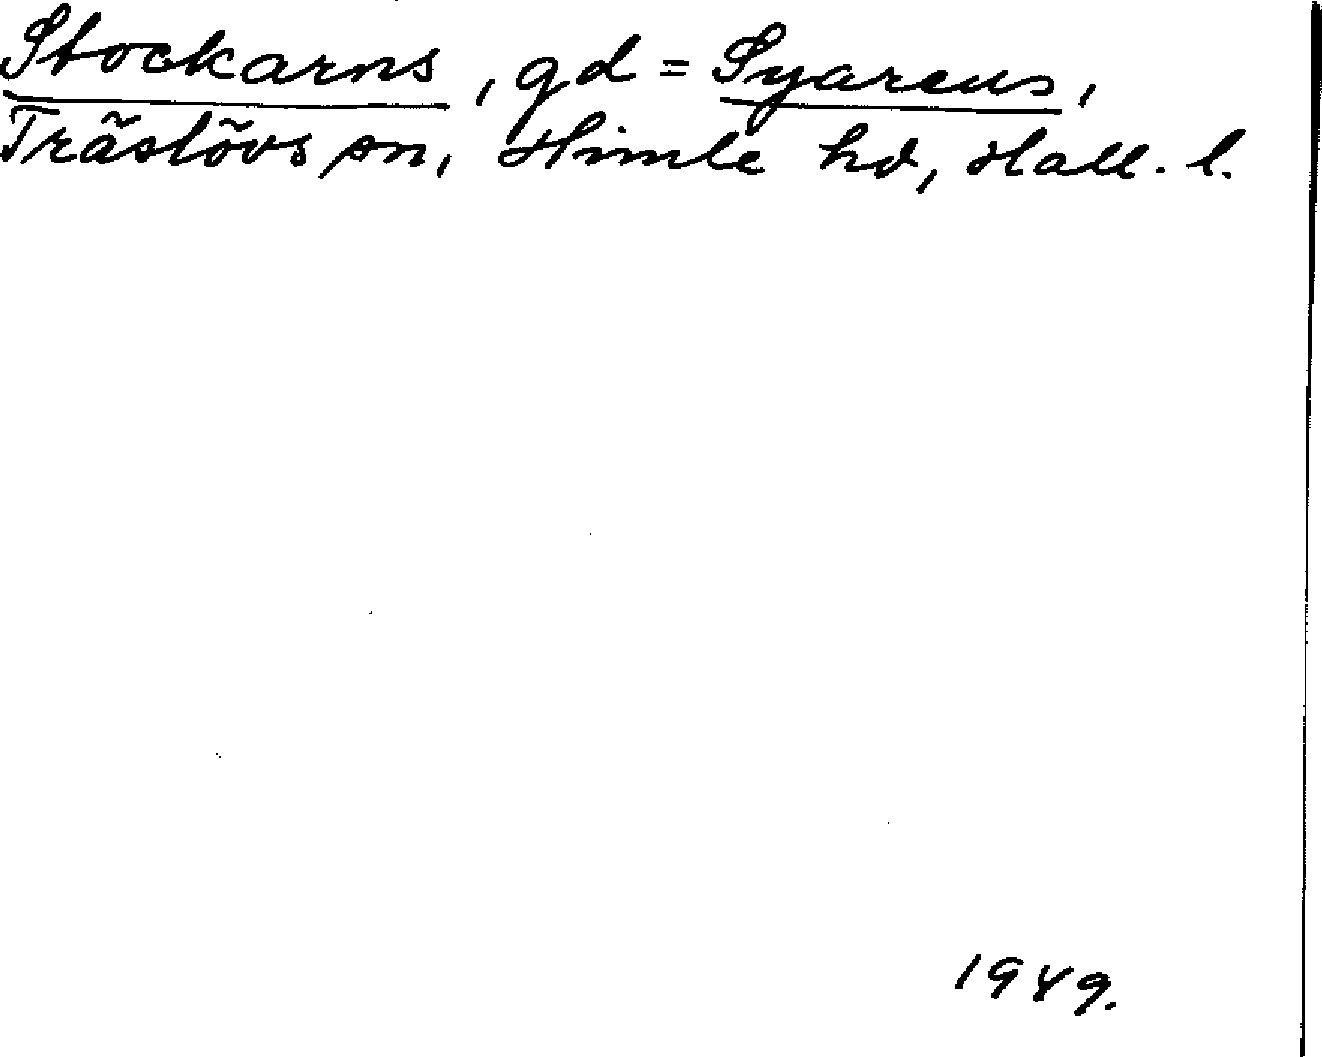 Stockarns, gd = Syareus,
Träslövs sn, Himle hd, Hall. l.
1949.